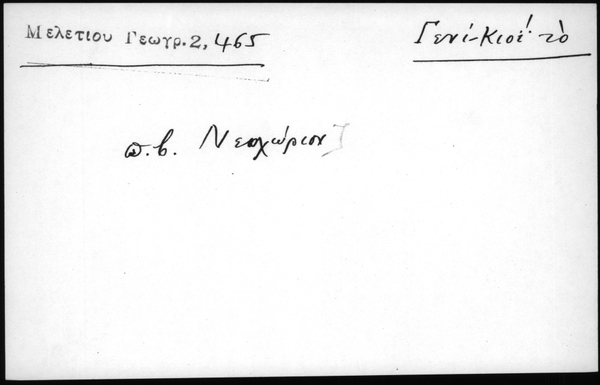 Μελετίου Γεωγρ.2, 465
Γενί-Κιοϊ' τὸ
π.β. Νεοχώριον